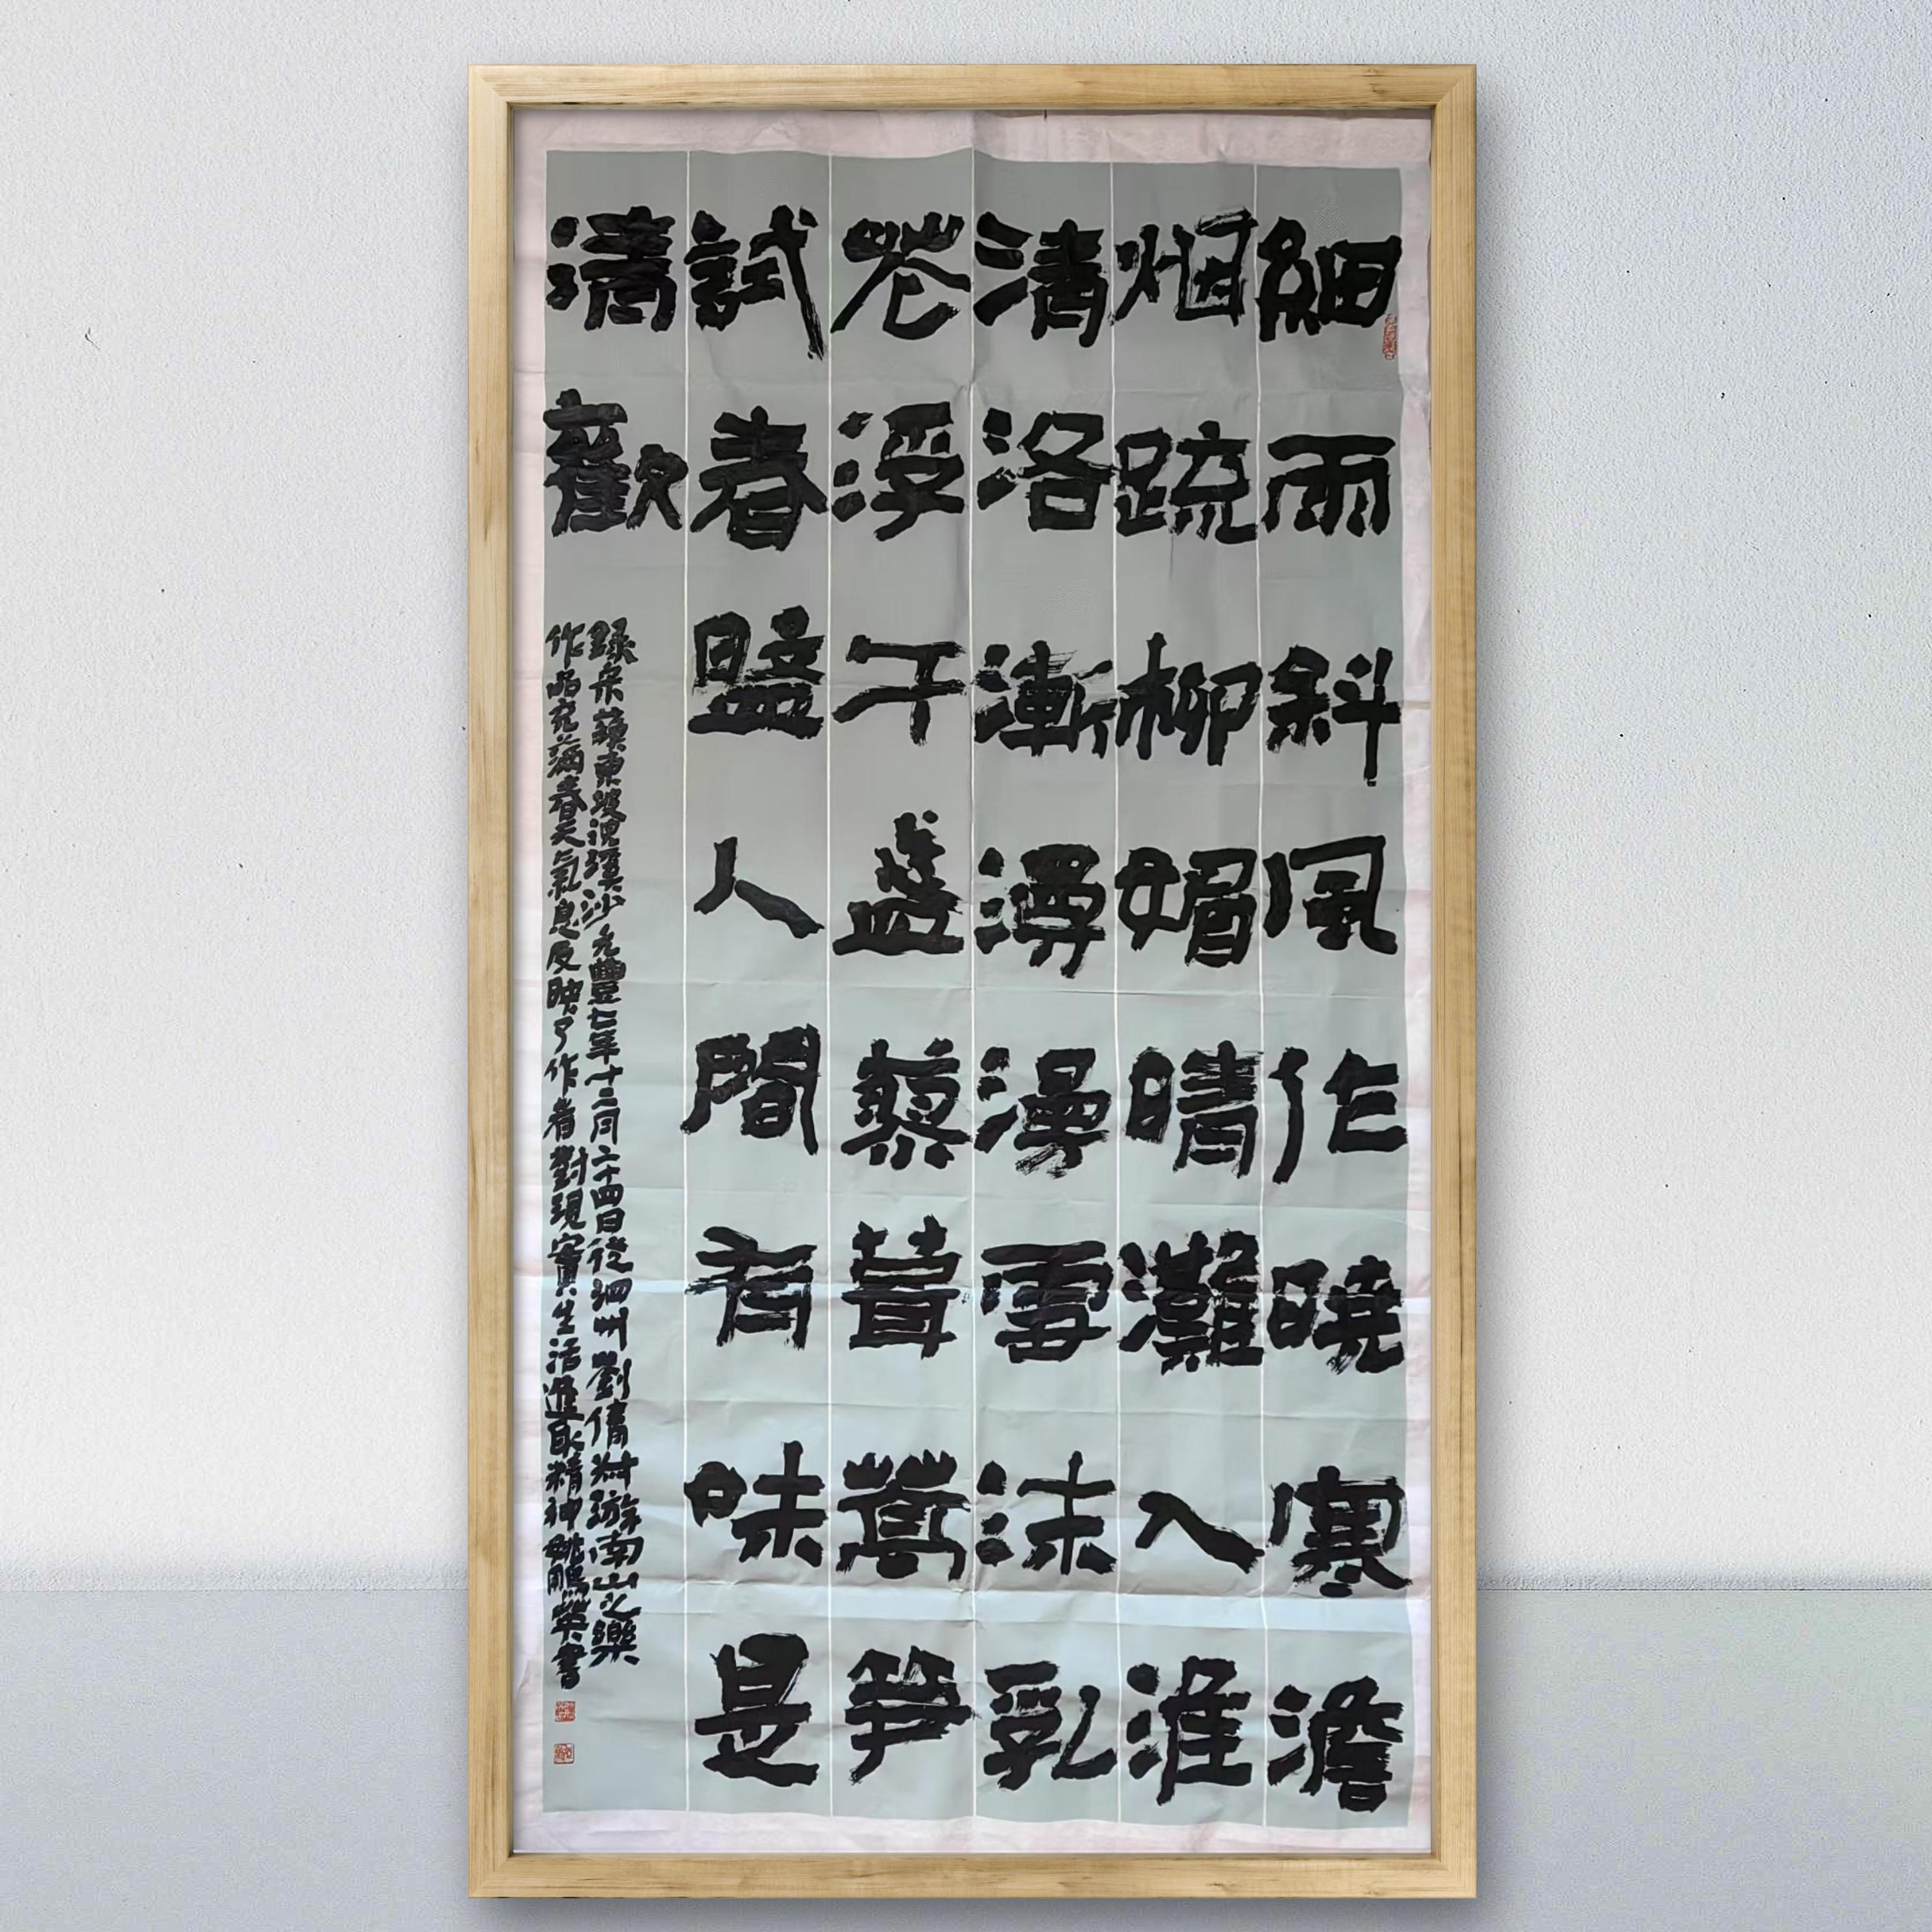 細雨斜風作曉寒澹
烟疏柳媚晴灘入淮
清洛漸漫漫雪沫乳
花浮午盞蓼茸蒿笋
試春盤人間有味是
清歡
錄宋蘇東坡浣溪沙元豐七年十二月二十四日從泗州劉倩叔游南山之樂
作品充滿春天氣息反映了作者對現實生活進取精神姚鵬英書